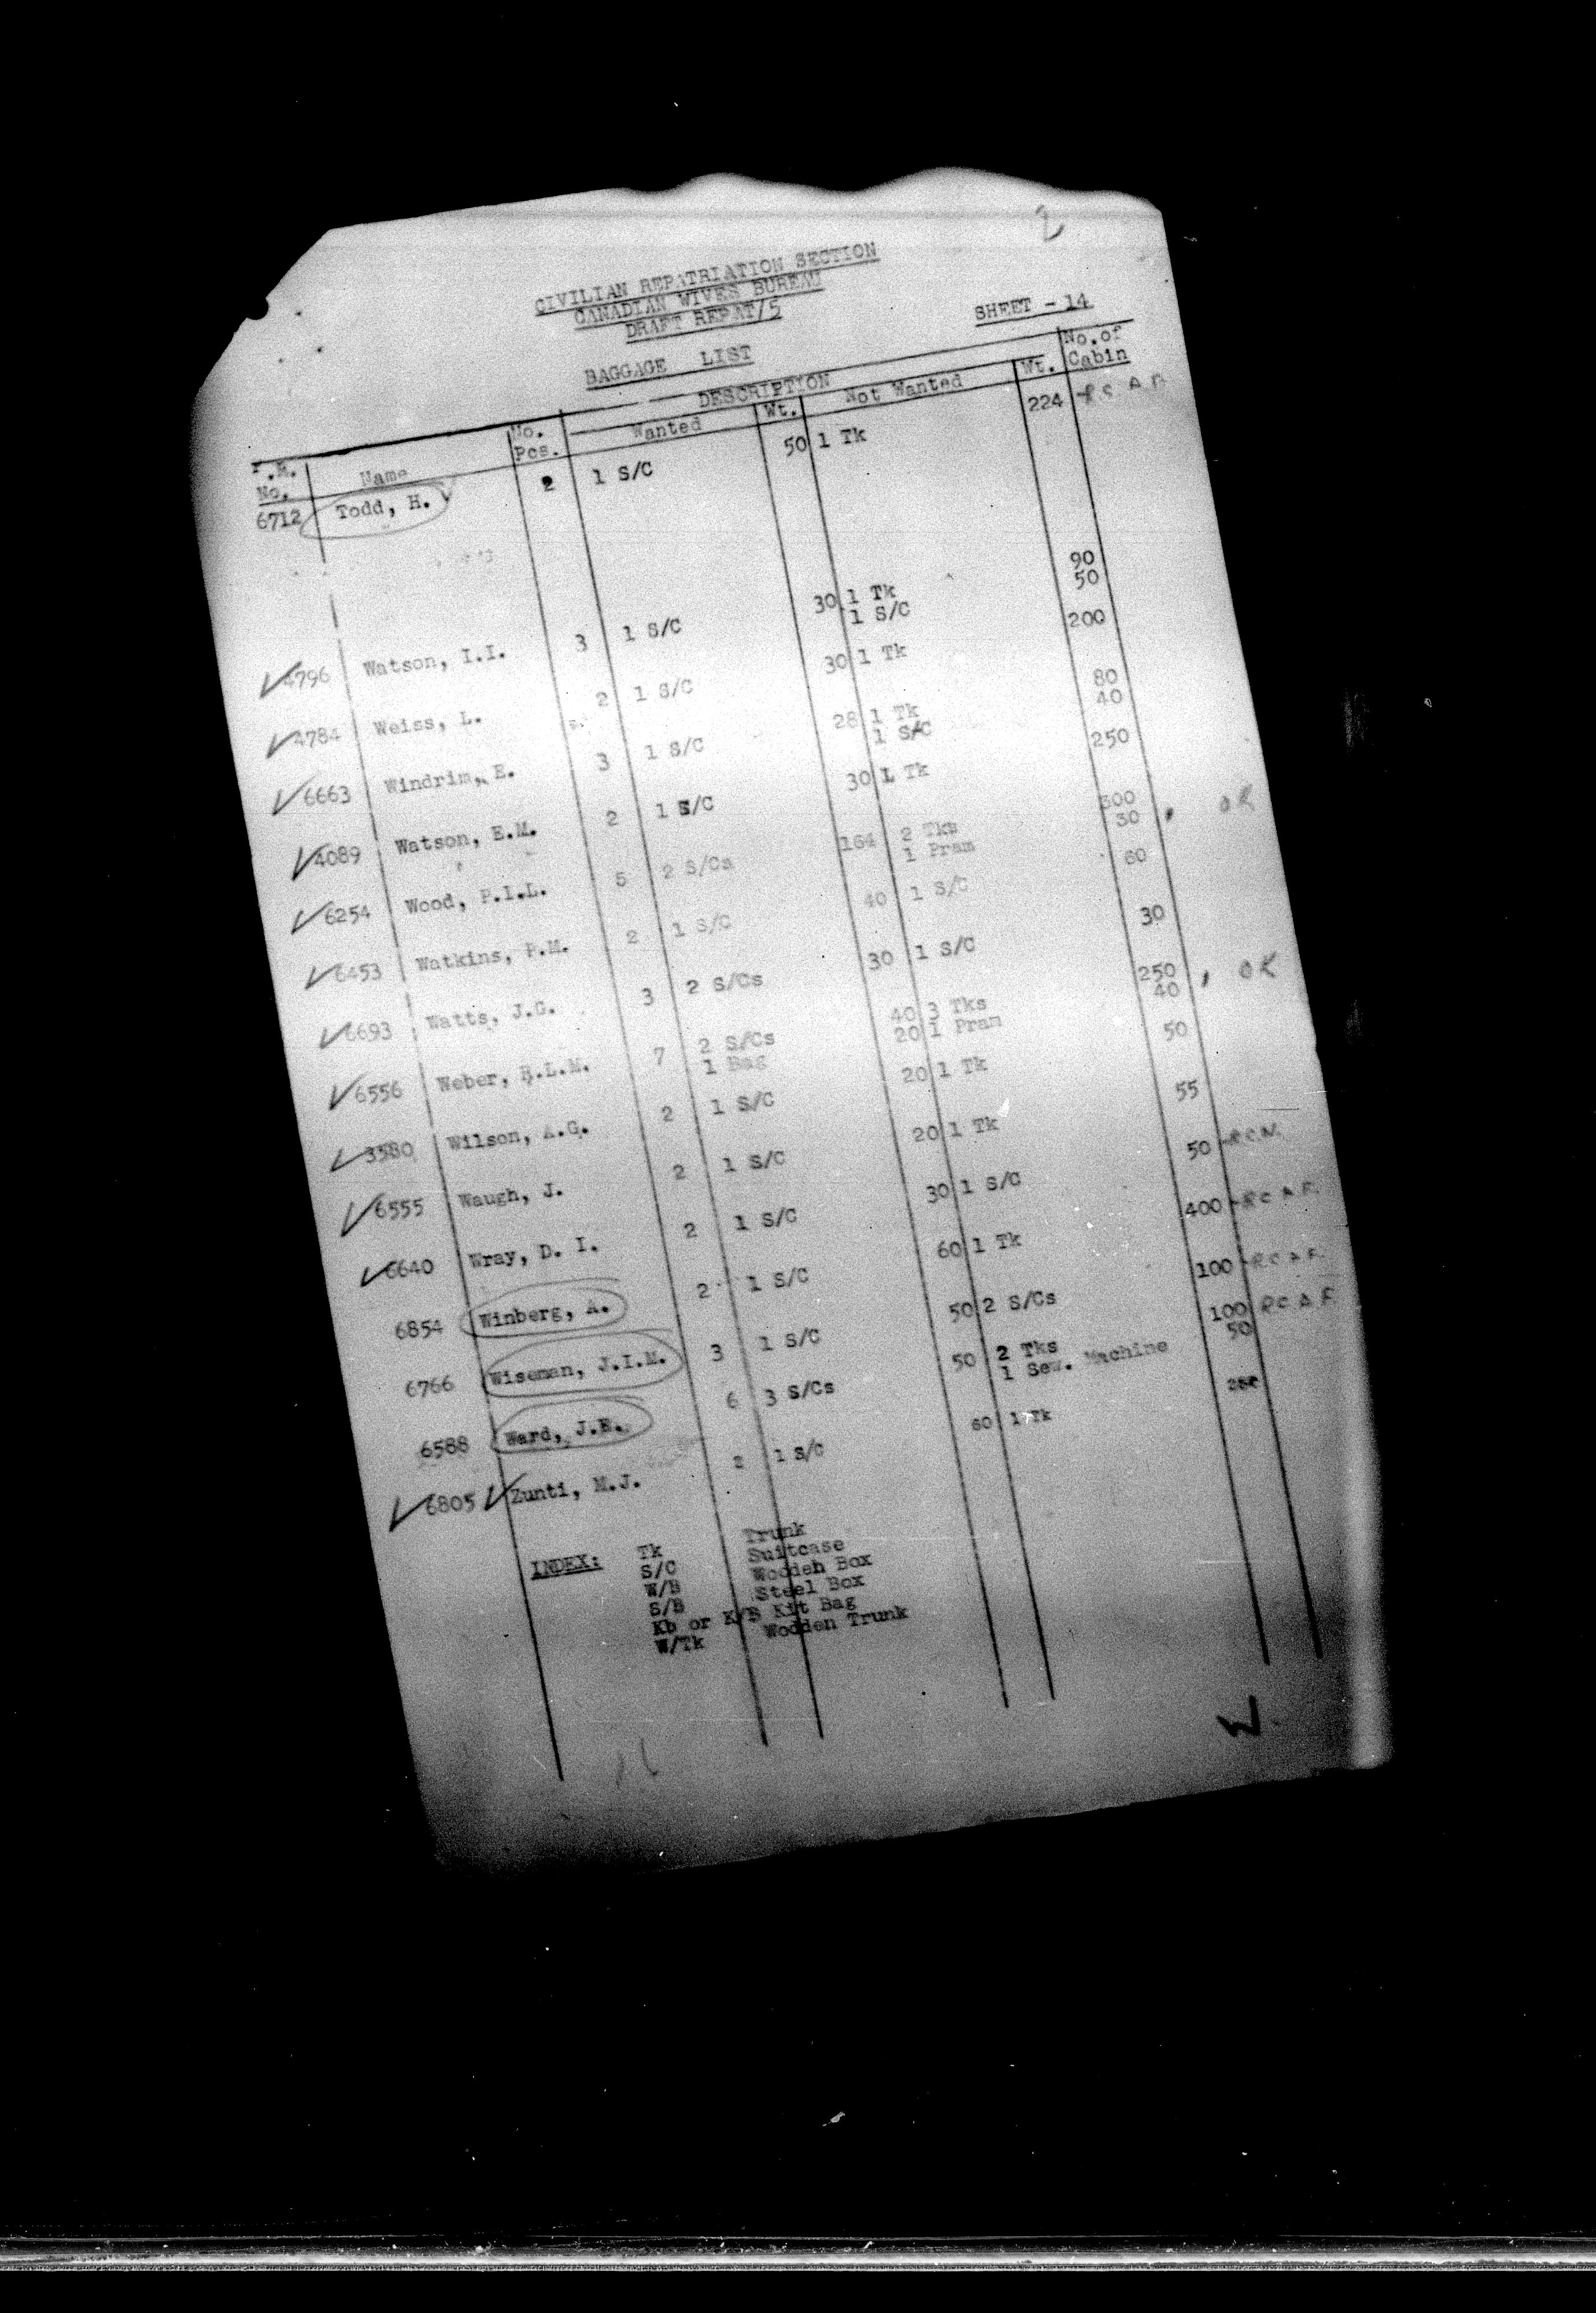 2
CIVILIAN REPATRIATION SECTION
CANADIAN WIVES BUREAU
DRAFT REPAT/5
SHEET - 14
BAGGAGE LIST
DESCRIPTION
No. Name No. Pcs. Wanted Wt. Not Wanted Wt. No. of Cabin
6712 Todd, H. 2 1 S/C 50 1 Tk 224 R C A F
4796 Watson, I.I. 3 1 S/C 30 1 Tk 90
1 S/C 50
4784 Weiss, L. 2 1 S/C 30 1 Tk 200
6663 Windrim, E. 3 1 S/C 28 1 Tk 80
1 S/C 40
4089 Watson, E.M. 2 1 S/C 30 1 Tk 250
6254 Wood, P.I.L. 5 2 S/Cs 164 2 Tks 300
1 Pram 30 OK
6453 Watkins, P.M. 2 1 S/C 40 1 S/C 60
6693 Watts, J.G. 3 2 S/Cs 30 1 S/C 30
6556 Weber, R.L.M. 7 2 S/Cs 40 3 Tks 250 OK
1 Bag 20 1 Pram 40
3580 Wilson, A.G. 2 1 S/C 20 1 Tk 50
6555 Waugh, J. 2 1 S/C 20 1 Tk 55
6640 Wray, D. I. 2 1 S/C 30 1 S/C 50 R.C.N.
6854 Winberg, A. 2 1 S/C 60 1 Tk 400 R C A F.
6766 Wiseman, J.I.M. 3 1 S/C 50 2 S/Cs 100 R C A F.
6588 Ward, J.E. 6 3 S/Cs 50 2 Tks 100 R C A F
1 Sew. Machine 50
6805 Zunti, M.J. 2 1 S/C 60 1 Tk
INDEX: Tk Trunk
S/C Suitcase
W/B Wooden Box
S/B Steel Box
Kb or K/B Kit Bag
W/Tk Wodden Trunk